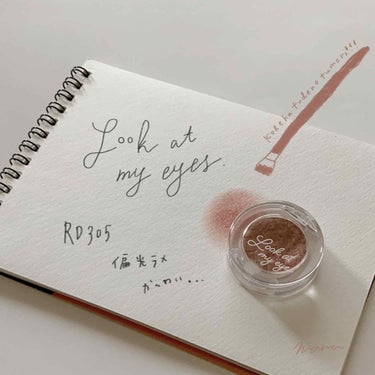 Look at
my eyes.
RD305
偏光ラメ
かーわいい...
Look at
my eyes
koreha fudenotumori!!